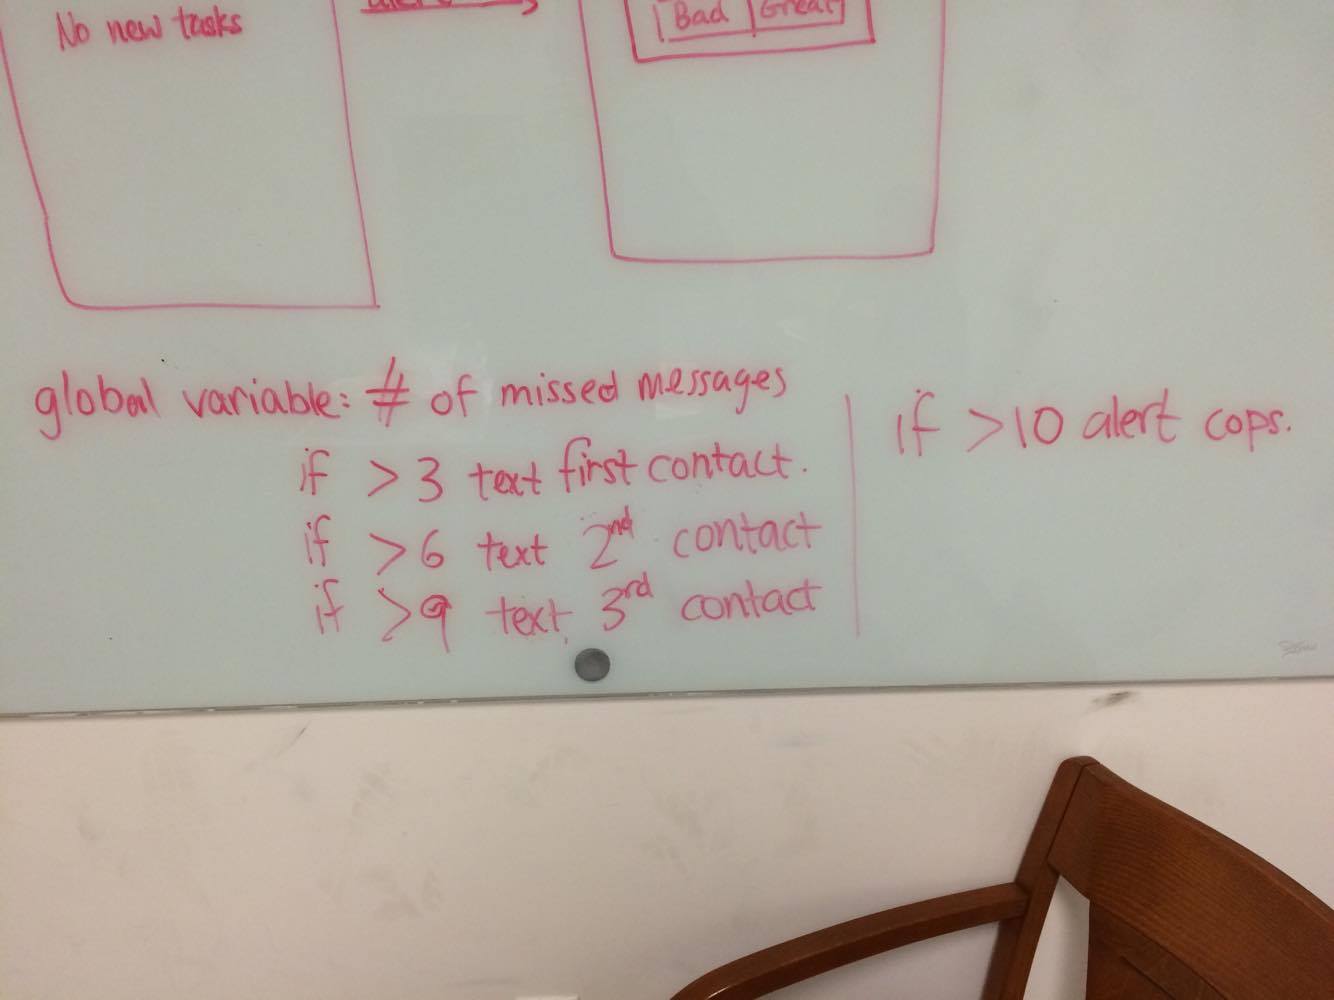 No new tasks
Bad Great
global variable: # of missed messages
if > 3 text first contact.
if > 6 text 2nd contact
if > 9 text 3rd contact
if > 10 alert cops.